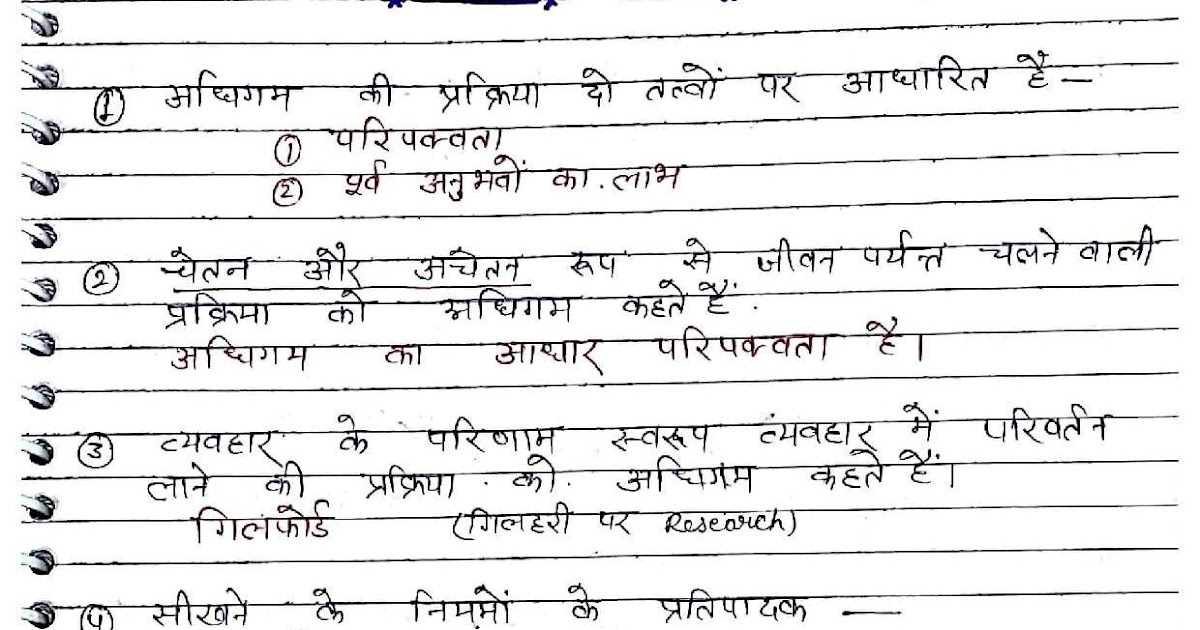 ① अधिगम की प्रक्रिया दो तत्वों पर आधारित है —
① परिपक्वता
② पूर्व अनुभवों का.लाभ
② चेतन और अचेतन रूप से जीवन पर्यन्त चलने वाली
प्रक्रिया को अधिगम कहते हैं.
अधिगम का आधार परिपक्वता है।
③ व्यवहार के परिणाम स्वरूप व्यवहार में परिवर्तन
लाने की प्रक्रिया को अधिगम कहते हैं।
गिलफोर्ड (गिलहरी पर Research)
④ सीखने के नियमों के प्रतिपादक —